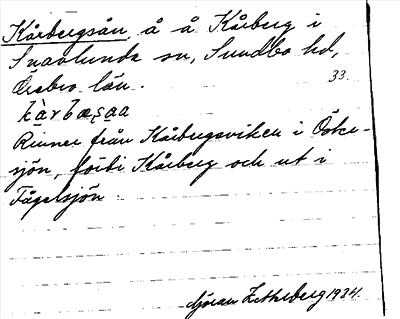 Kårbergsån, å å Kårberg i
Snavlunda sn, Sundbo hd,
Örebro län.
33.
Rinner från Kårbergsviken i Öster-
sjön, förbi Kårberg och ut i
Fågelsjön
Göran Zetterberg 1934.